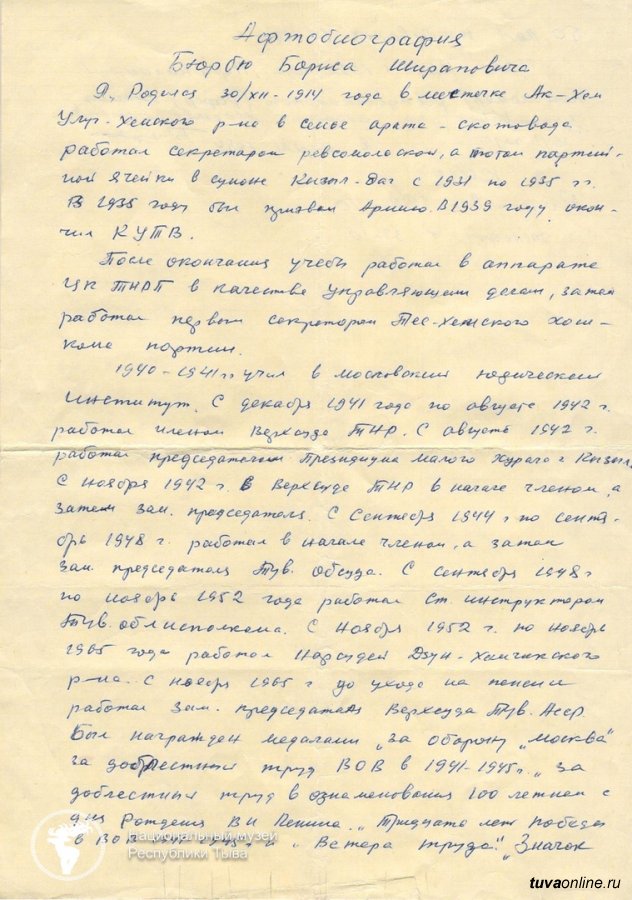 Афтобиография
Бюрбю Бориса Шираповича
Я, Родился 30/XII-1914 года в местечке Ак-Хем
Улуг-Хемского р-на в семье арата-скотовода
работал секретарем ревсомолской, а потом партий-
ной ячейки в сумоне Кызыл-Даг с 1931 по 1935 гг.
В 1935 году был призван Армию. В 1939 году окон-
чил КУТВ.
После окончания учебы работал в аппарате
ЦК ТНРП в качестве управляющем делам, затем
работал первым секретарем Тес-Хемского хош-
кома партии.
1940-1941 гг учил в московский юдическом
институт. С декабря 1941 года по августе 1942 г.
работал членом Верхсуда ТНР. С августа 1942 г.
работал председателем Президиума Малого Хурала г. Кызыл,
С ноября 1942 г. в Верхсуде ТНР в начале членом, а
затем зам. председателя. С Сентября 1944 г по сентя-
брь 1948 г. работал в начале членом, а затем
Зам. председателя Тув. Облсуда. С сентября 1948 г
по ноябрь 1952 года работал Ст. инструктором
Тув. облисполкома. С ноября 1952 г. по ноябрь
1965 года работал Нарсудей Дзун-Хемчикского
р-на. С ноября 1965 г до ухода на пенсии
работал Зам. председателя Верхсуда Тув. Асср.
Был награжден медалами „За оборону „Москва"
За доблестный труд ВОВ в 1941-1945 г. „За
доблестный труд в ознаменования 100 летием с
дня Рождения ВИ Ленина.„ Тридцать лет победы
в ВОВ 1941-1945 г. и „Ветера труда." „Значок
Национальный музей
Республики Тыва
tuvaonline.ru